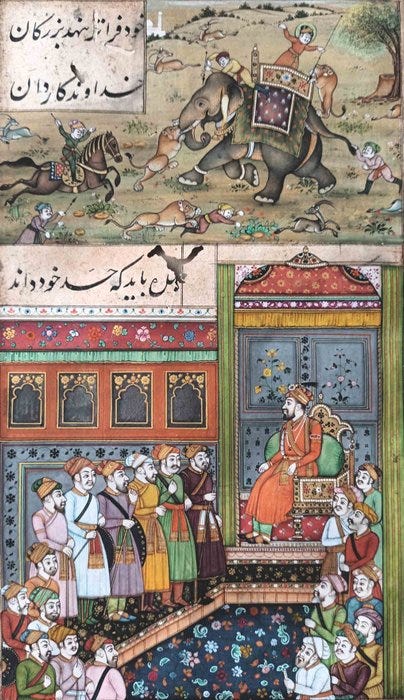 خود فراتر بزرگان
خداوند کاردان
باید که حد خود داند